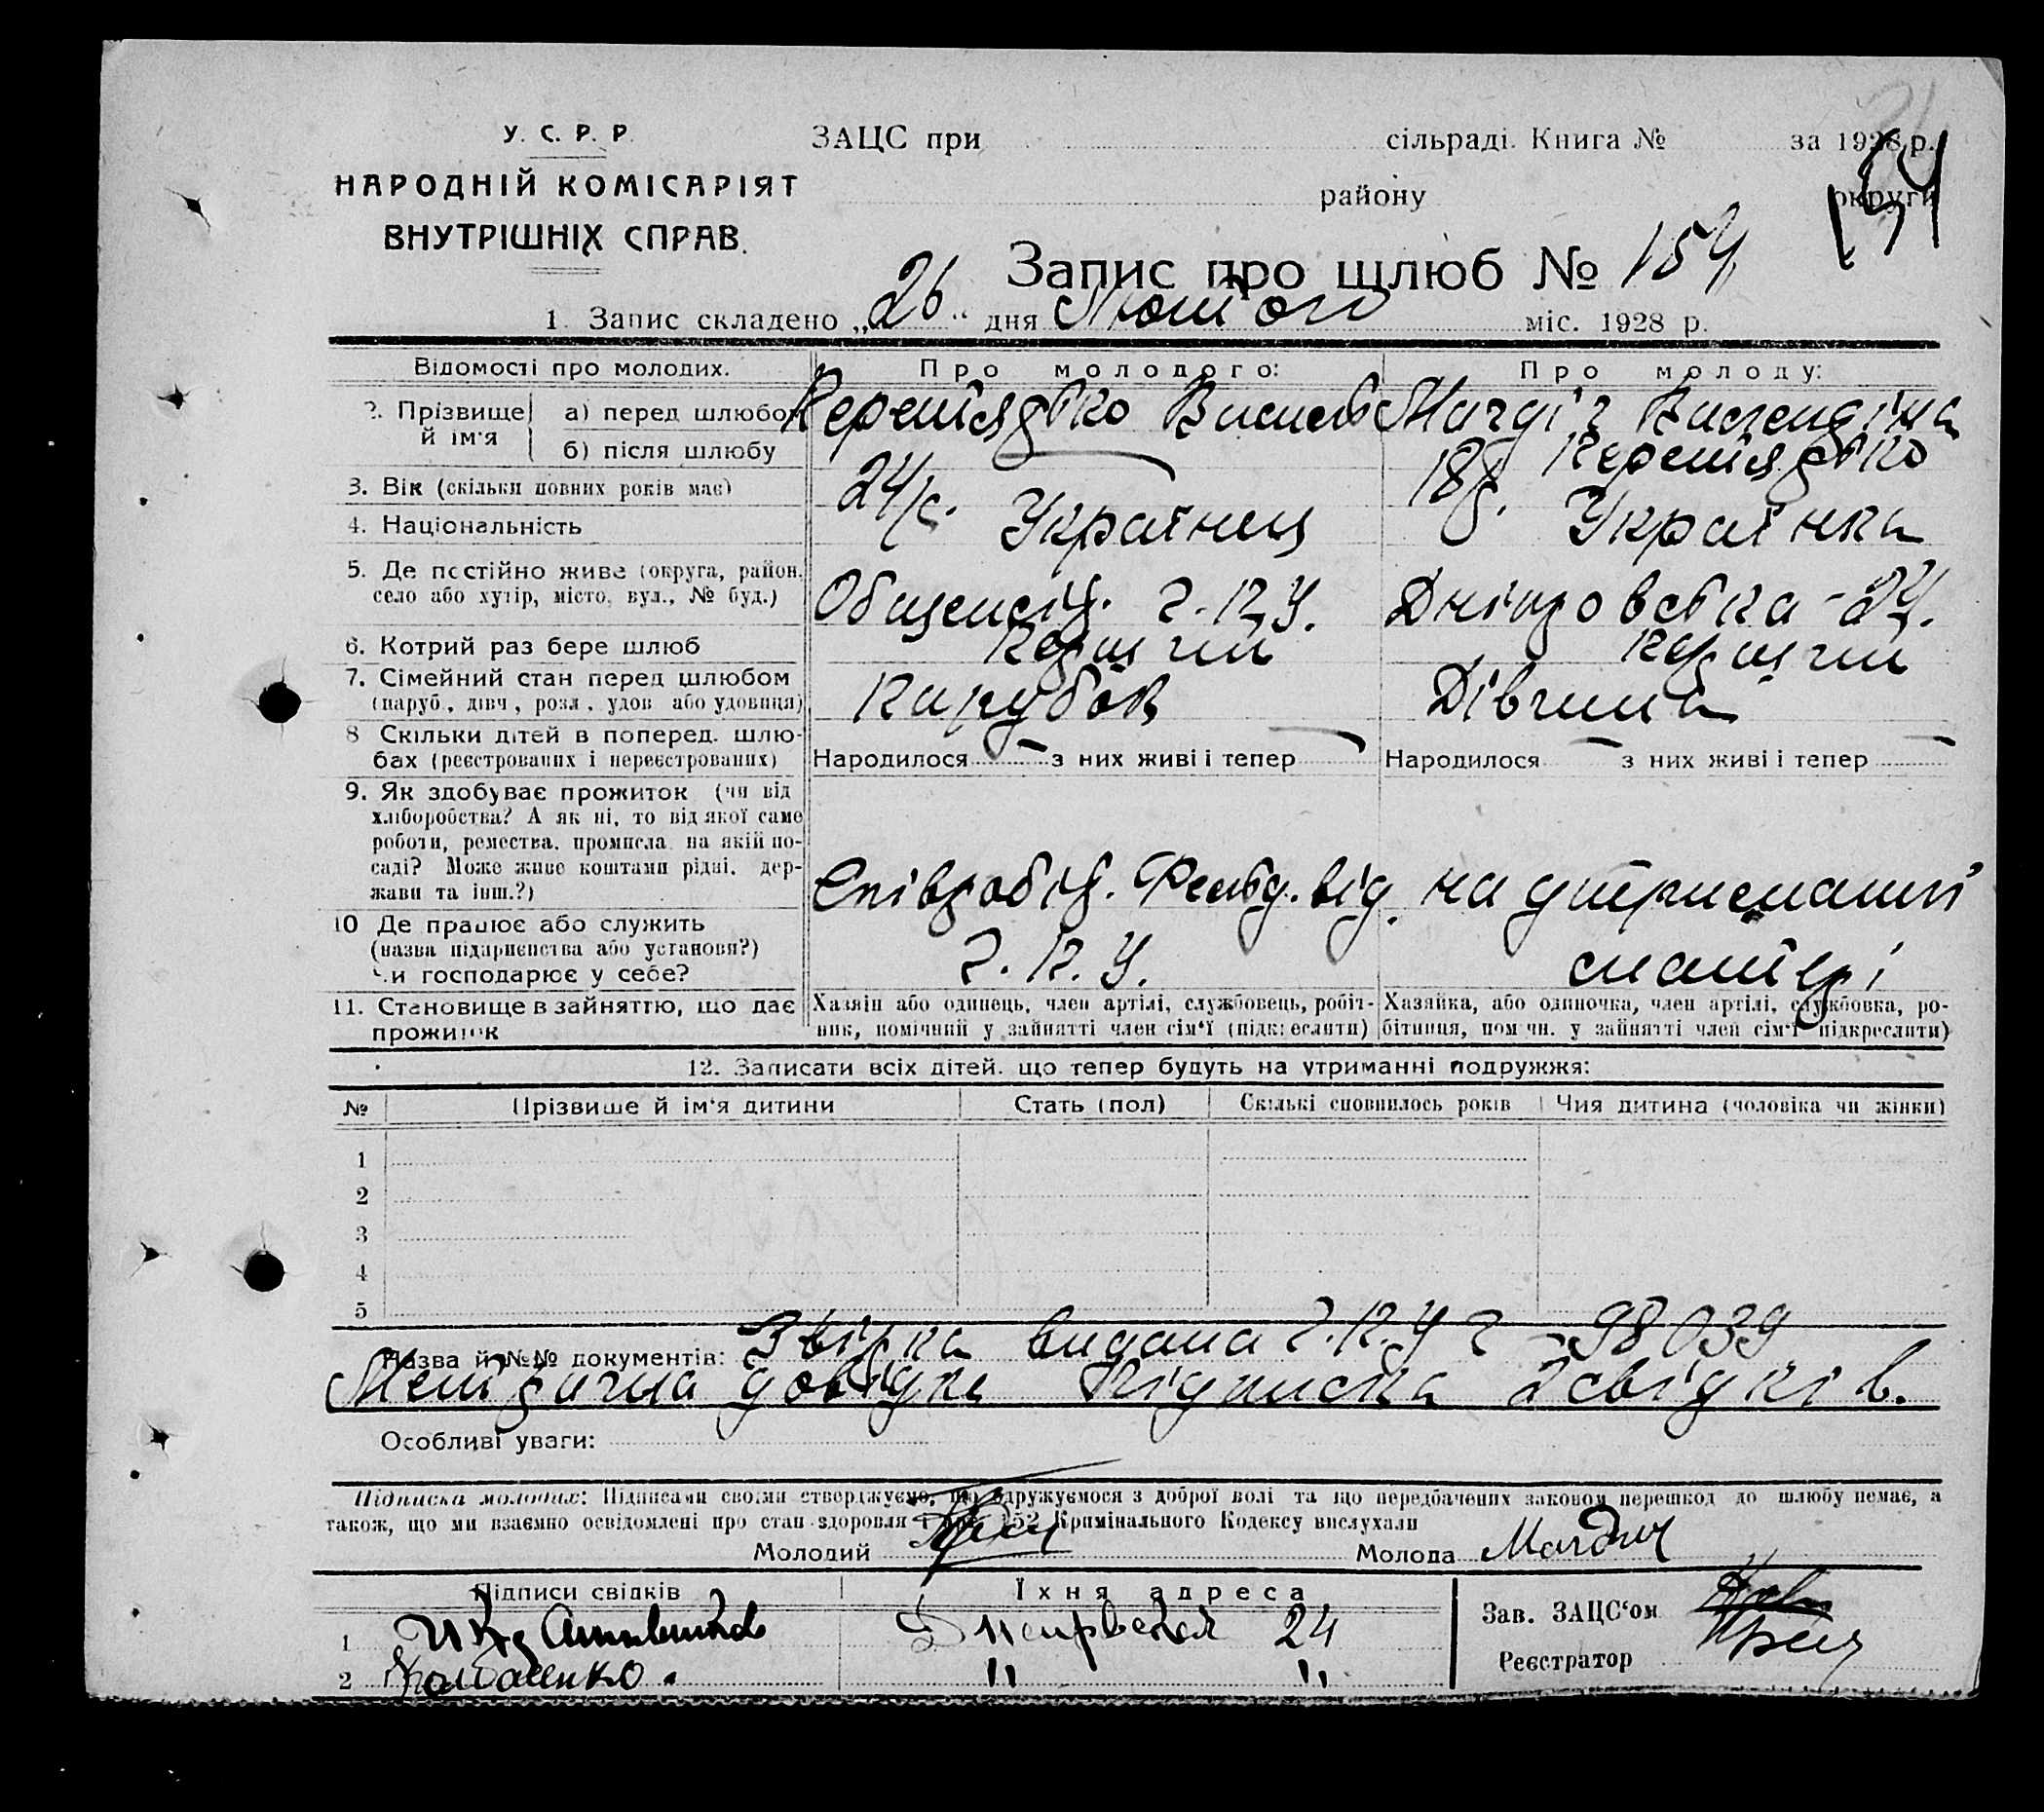 У. С. Р. Р.
НАРОДНІЙ КОМІСАРІЯТ
ВНУТРІШНІХ СПРАВ.
ЗАЦС при сільраді. Книга № за 1928 р.
району округи
154
Запис про шлюб № 154
1. Запис складено „26“ дня Лютого міс. 1928 р.
Відомості про молодих. Про молодого: Про молоду:
2. Прізвище й ім'я
а) перед шлюбом
б) після шлюбу
3. Вік (скільки повних років має) 24 18
4. Національність Українец Українка
5. Де постійно живе (округа, район, село або хутір, місто, вул., № буд.) Общежит. Г.П.У. Дніпровська - 24.
6. Котрий раз бере шлюб Перший Перший
7. Сімейний стан перед шлюбом (паруб., дівч., розл., удов. або удовиця) Парубок Дівчина
8 Скільки дітей в поперед. шлюбах (реєстрованих і нереєстрованих) Народилося — з них живі і тепер — Народилося — з них живі і тепер —
9. Як здобуває прожиток (чи від хліборобства? А як ні, то від якої саме роботи, ремества, промисла, на якій посаді? Може живе коштами рідні, держави та інш.?) Співробіт. Фельд. від. на утриманні
10 Де працює або служить (назва підприємства або установи?) Чи господарює у себе? Г.П.У. матері
11. Становище в зайняттю, що дає прожиток
Хазяїн або одинець, член артілі, службовець, робітник, помічний у зайнятті член сім'ї (підкреслити)
Хазяйка, або одиночка, член артілі, службовка, робітниця, помічн. у зайнятті член сім'ї (підкреслити)
12. Записати всіх дітей, що тепер будуть на утриманні подружжя:
№ Прізвище й ім'я дитини Стать (пол) Скількі сповнилось років Чия дитина (чоловіка чи жінки)
1
2
3
4
5
Назва й №№ документів: видана Г.П.У 98039
Метрична довідка Підписка 2 свідків.
Особливі уваги:
Підписка молодих: Підписами своїми стверджуємо, що одружуємося з доброї волі та що передбачених законом перешкод до шлюбу немає, а
також, що ми взаємно освідомлені про стан здоровля і арт. 152 Кримінального Кодексу вислухали
Молодий Молода
Підписи свідків Їхня адреса
Зав. ЗАЦС'ом
1 24
Реєстратор
2 " "